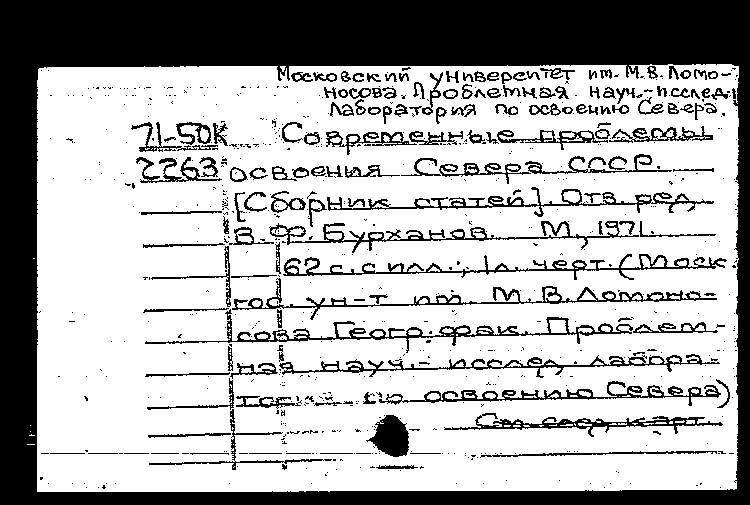 Московский университет им. М.В. Ломо-
носова. Проблемная науч.-исслед.
лаборатория по освоению Севера.
71-50К Современные проблемы
2263 освоения Севера СССР.
[Сборник статей]. Отв. ред.
В.Ф. Бурханов. М., 1971.
62 с. с илл.; 1 л. черт. (Моск.
гос. ун-т им. М.В. Ломоно-
сова. Геогр. фак. Проблем-
ная науч.-исслед. лабора-
тория по освоению Севера)
См. след. карт.